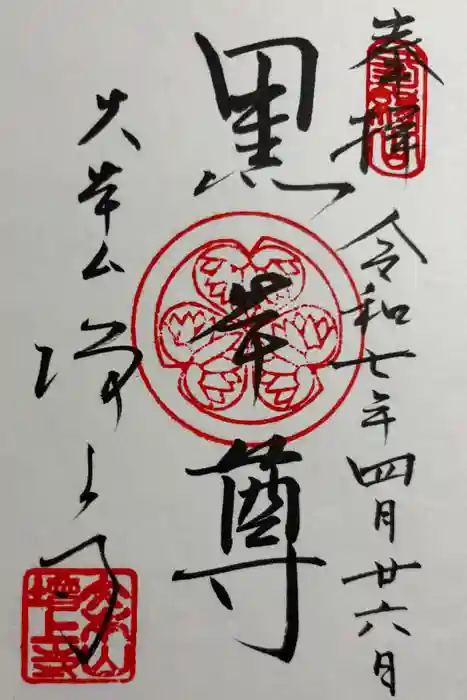 奉拝
令和七年四月廿六日
黒本尊
大本山
増上寺
増上寺